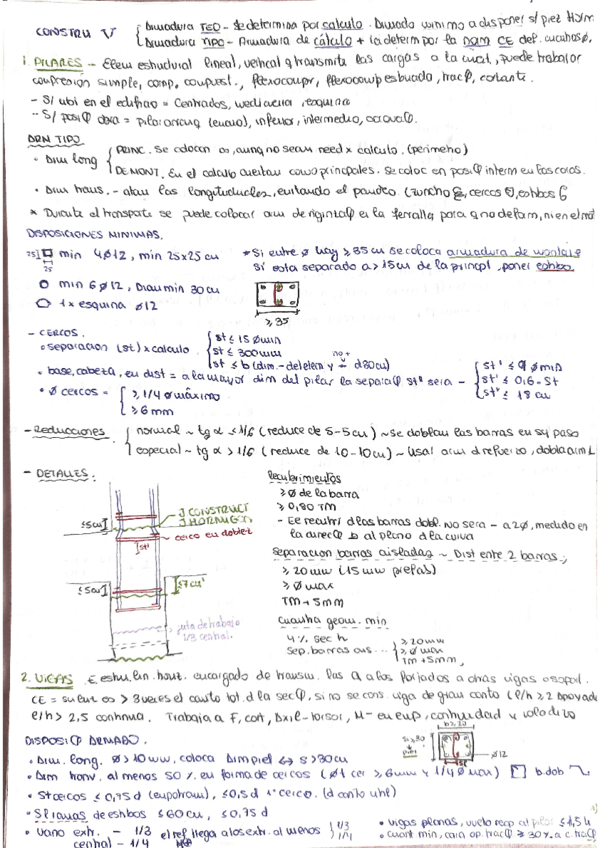 CONSTRU V
Armadura TEO - Se determina por calculo. Armado minimo a disponer s/ piez Horm.
Armadura TIPO - Armadura de cálculo + la determ por la CE def. cuantias ø.
1. PILARES - Elem estructural lineal, vertical q transmite las cargas a la cuct, puede trabajar
compresion simple, comp. compuest., flexocompr, flexocomp esbuado, tracφ, cortante.
- S/ ubi en el edificio = Centrados, medianeria, esquina
- S/ posiφ obra = pilar arranq (enano), inferior, intermedio, coronaφ.
ARM TIPO
• Arm long
PRINC. se colocan 00, aunq no sean neced x calculo. (perimetro)
DE MONT. En el calculo cuentan como principales. Se coloc en posiφ interm en las caras.
• Arm trans. - atan las longitudinales, evitando el pandeo (zuncho, cercos, estribos
* Durante el transporte se puede colocar arm de rigintaφ es la ferralla para q no deform, ni en el
DISPOSICIONES MINIMAS.
25 25 min 4ø12, min 25x25 cu
min 6ø12, Diam min 30cu
1x esquina ø12
* Si entre ø hay ≥ 35 cu se coloca armadura de montaje
Si esta separado a > 15cu de la princpl, poner estribo.
≥ 35
- CERCOS.
• separacion (st) x calculo.
st ≤ 15 ømin
st ≤ 300mm
st ≤ b (dim. - del elem y no + d 30cu)
• base, cabeza, en dist = a la mayor dim del pilar la separaφ st' sera -
st' ≤ 9 ø min
st' ≤ 0,6·St
st' ≤ 18 cu
• ø cercos =
≥ 1/4 ø máximo
≥ 6mm
- Reducciones.
normal ~ tg α ≤ 1/6 (reduce de 5-5cu) ~ se doblan las barras en su paso
especial ~ tg α > 1/6 (reduce de 10-10cu) ~ Usar arm d refuerzo, dobla arm L
- DETALLES:
≤5cu
J CONSTRUCT
J HORMIGON
cerco en doblez
st'
≤5cu
≤7cu
junta de trabajo
1/3 central.
Recubrimientos
≥ ø de la barra
≥ 0,80 TM
- Ee recubri d las barras dobl. no sera - a 2ø, medido en
la direcφ ⊥ al plano d la curva
Separacion barras aisladas ~ Dist entre 2 barras:
≥ 20mm (15 mm prefas)
≥ ø max
TM + 5mm
Cuantia geom. min
4% sec h
Sep. barras
≥ 20mm
≥ ø max
TM + 5mm
2. VIGAS E. estru. lin. horiz. encargado de transm. las Q a los forjados a otras vigas o sopol.
CE = su luz es > 3 veces el canto tot. d la secφ, si no se cons. viga de gran canto (l/h ≥ 2 apoyada
e l/h > 2,5 continua. Trabaja a F, cort, Axil-torsor, M- en emp, continuidad y voladizo
DISPOSIφ ARMADO.
• Arm. long. ø > 10mm, coloca Arm piel ↔ s > 30cu
• Arm tranv. al menos 50% en forma de cercos (øt cer ≥ 6mm y 1/4 ø max) b. dob
• St cercos ≤ 0,75 d (empotram), ≤ 0,5 d 1º cerco. (d canto util)
• S lianas de estribos ≤ 60cu, ≤ 0,75 d
• Vano extr. - 1/3
central - 1/4
el ref llega a los extr. al menos
1/3
1/4
h ≥ 20
si ≥ 30
piel
ø12
• Vigas planas, vuelo resp al pilar ≤ 1,5h
• cuant min, cara op. tracφ ≥ 30% a c. tracφ